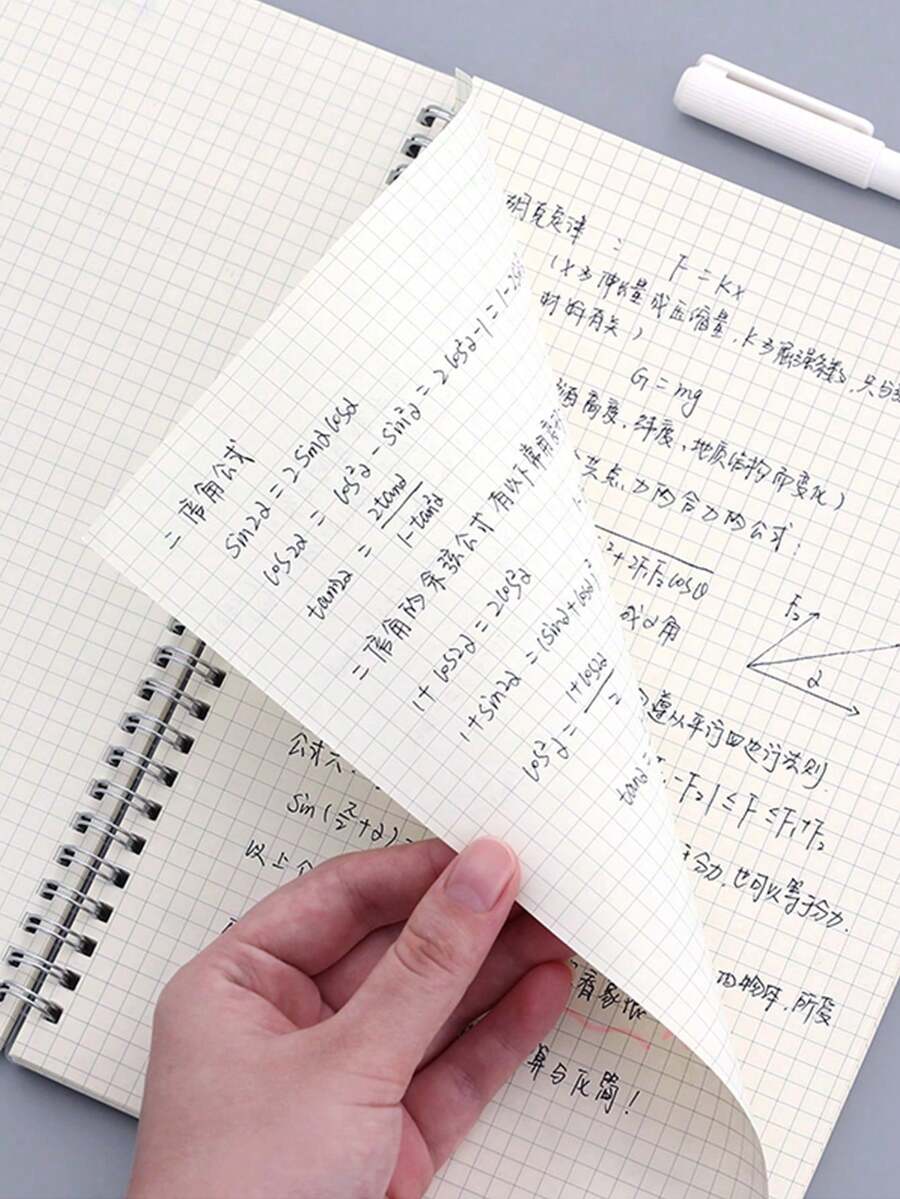 二倍角公式
sin2α = 2sinαcosα
cos2α = cos²α - sin²α = 2cos²α-1 = 1-2sin
tan2α = 2tanα / 1-tan²α
二倍角的余弦公式有以下常用
1+cos2α = 2cos²α
1+sin2α = (sinα+cosα)²
cos²α = 1+cos2α / 2
tanα=
胡克定律:
F=kx
(x为伸长量或压缩量,K为屈强系数,只与
材料有关)
G=mg
高度、纬度、地质结构而变化)
共点力的合力的公式:
²+2F₁F₂cosθ
F₂
α
成α角
遵从平行四边行法则.
-F₂|≤F≤F₁+F₂
于分力,也可以等于分力.
的物体,所受
算与化简!
公式六:
sin(π/2+α)=
以上